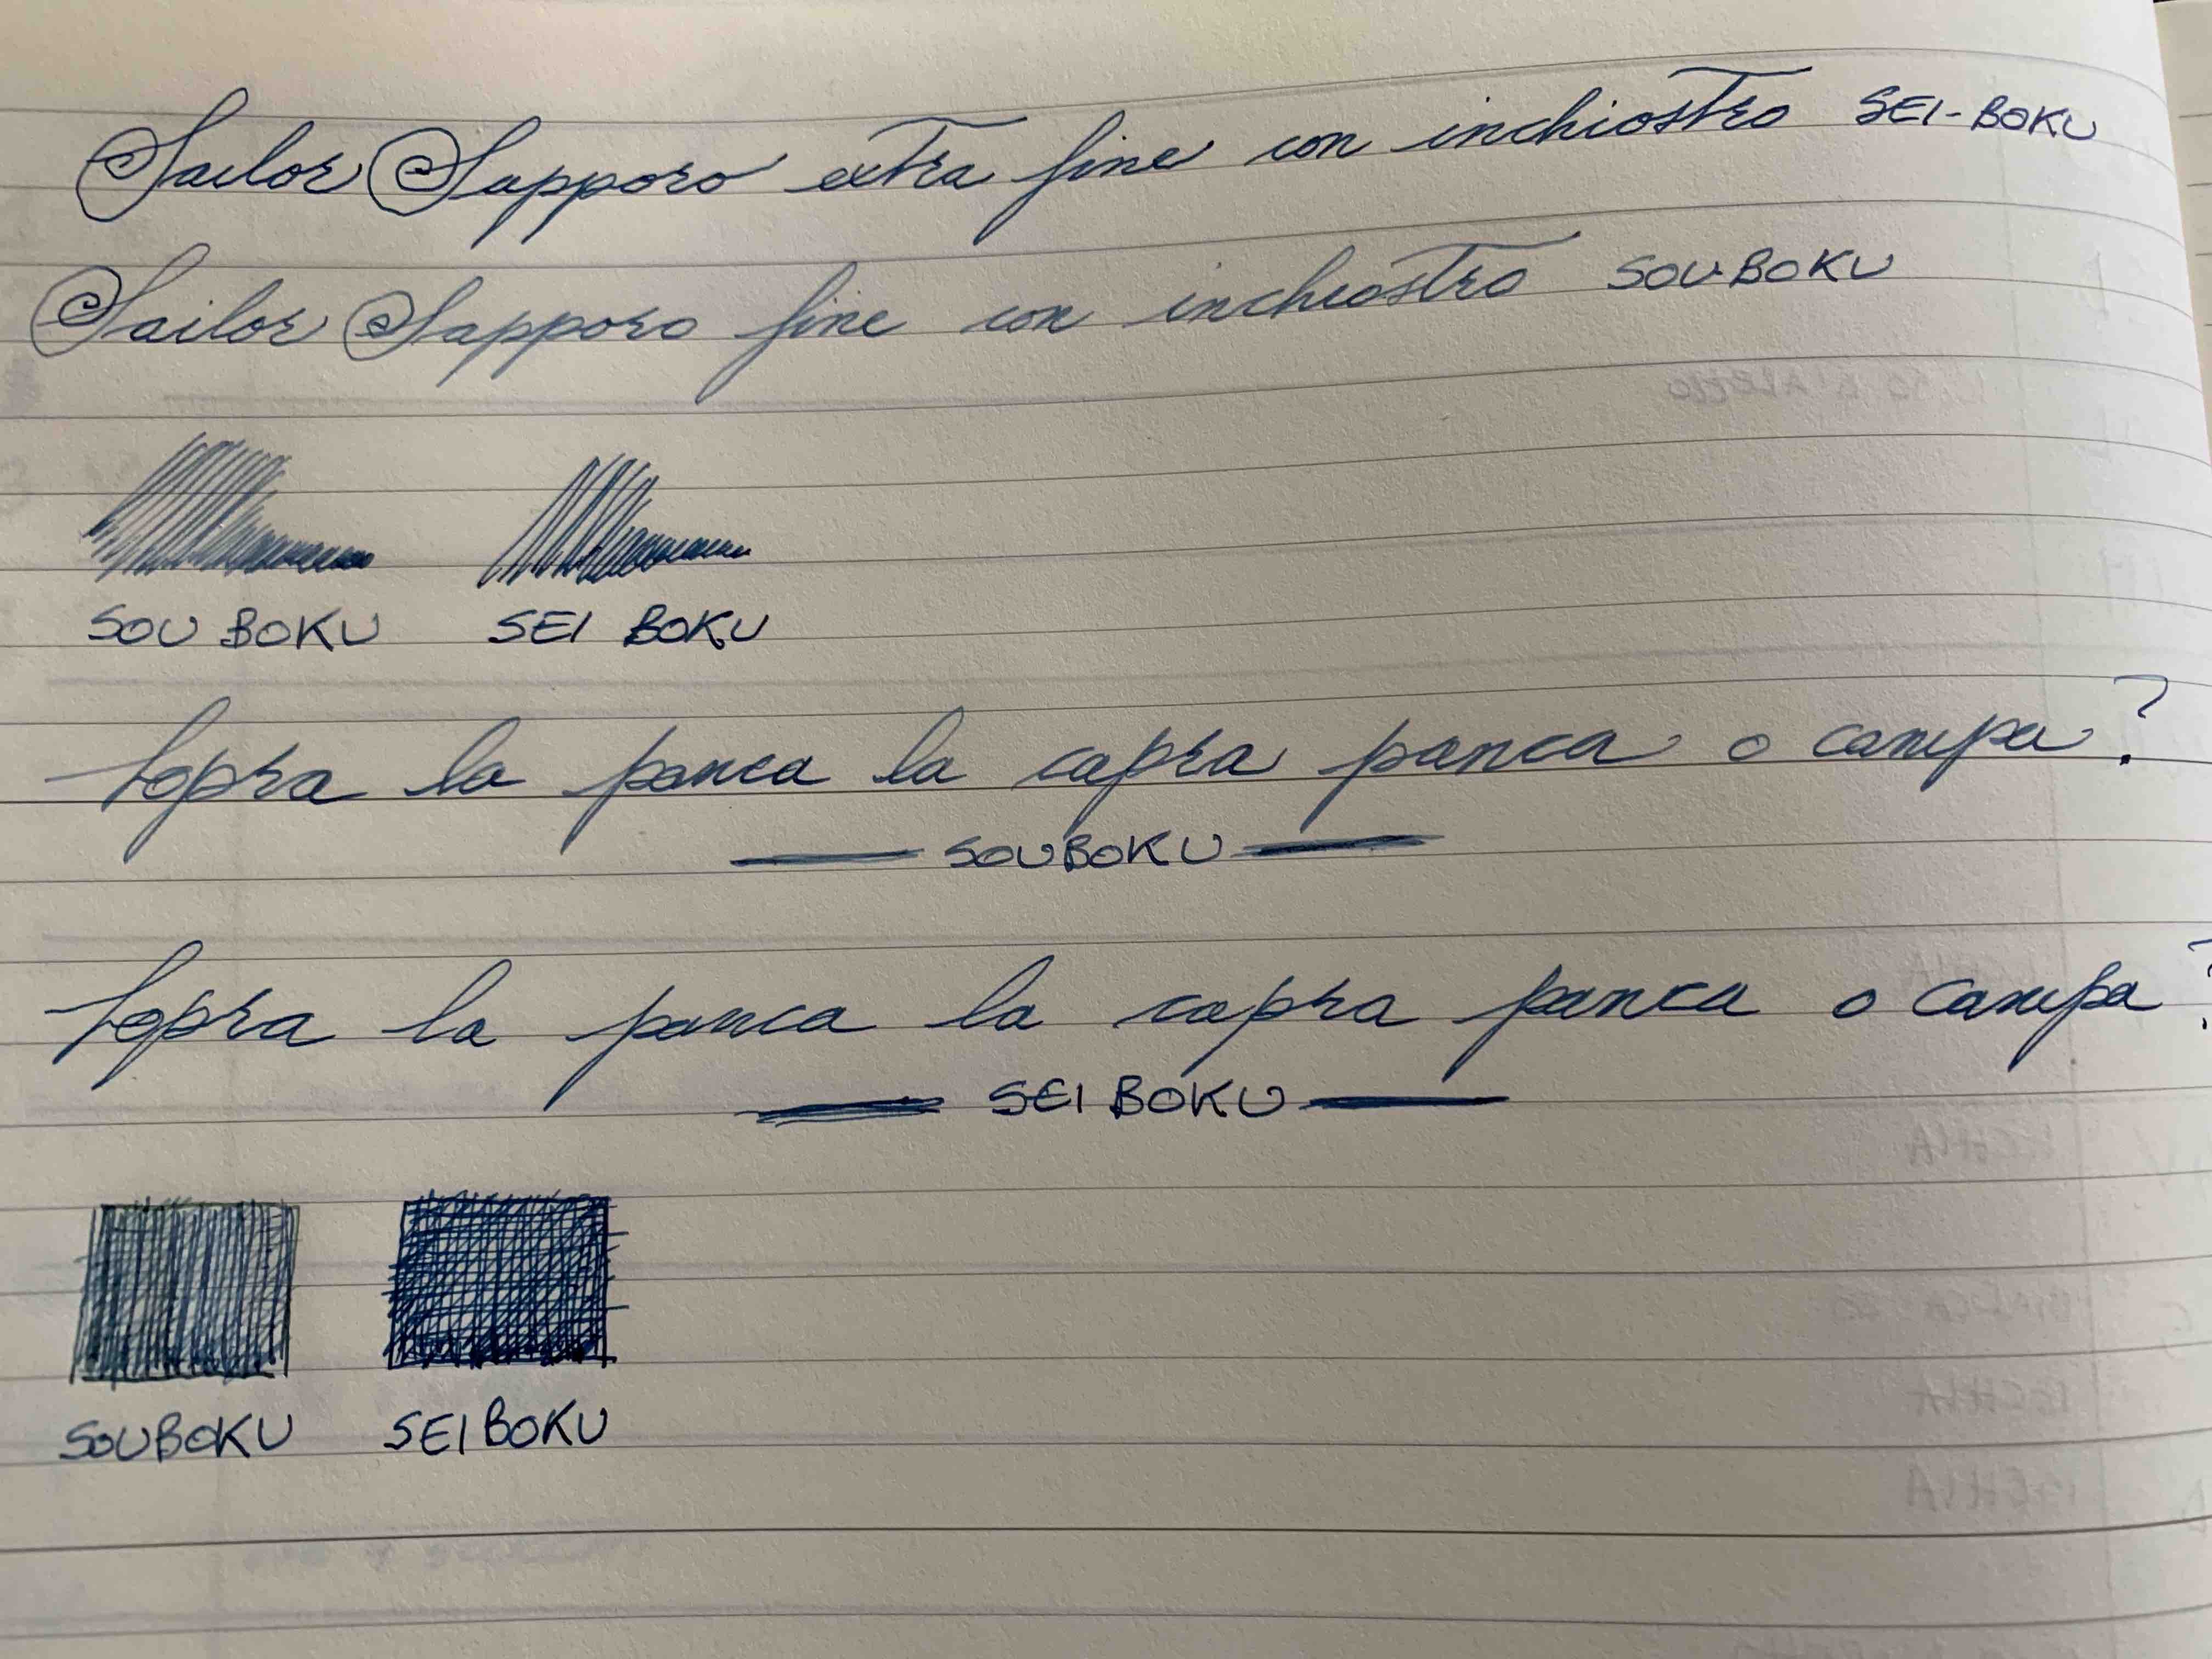 Sailor Sapporo extra fine con inchiostro SEI-BOKU
Sailor Sapporo fine con inchiostro SOU-BOKU
SOU BOKU SEI BOKU
Sopra la panca la capra panca o campa?
SOUBOKU
Sopra la panca la capra panca o campa?
SEI BOKU
SOUBOKU SEIBOKU